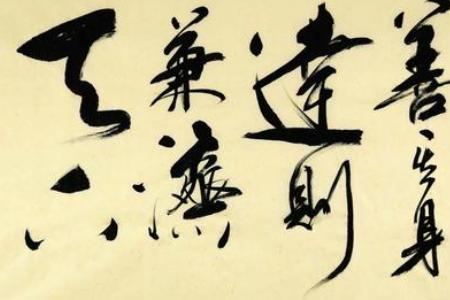 善其身
達則
兼濟
天下